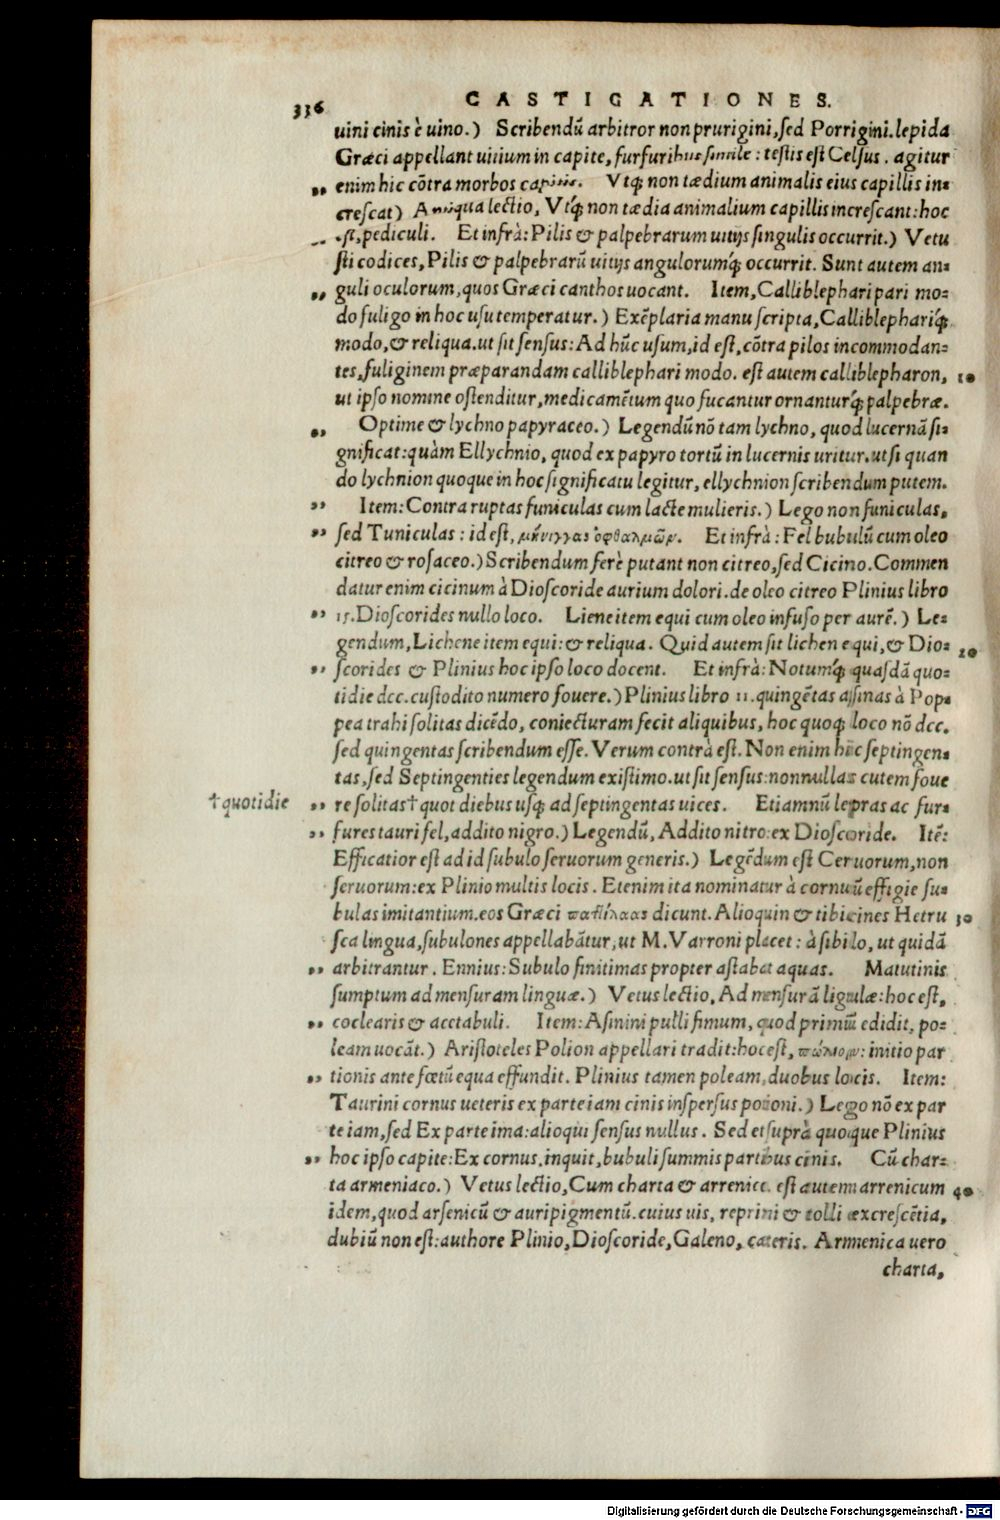 336 CASTIGATIONES.
uini cinis è uino.) Scribendũ arbitror non prurigini, sed Porrigini. lepida
Græci appellant uitium in capite, furfuribus simile: testis est Celsus. agitur
„ enim hic cõtra morbos capitis. Vtq; non tædium animalis eius capillis in-
crescat) Antiqua lectio, Vtq́; non tædia animalium capillis increscant: hoc
est, pediculi. Et infrà: Pilis & palpebrarum uitijs singulis occurrit.) Vetu
sti codices, Pilis & palpebrarũ uitijs angulorumq́; occurrit. Sunt autem an-
„ guli oculorum, quos Græci canthos uocant. Item, Calliblephari pari mo-
do fuligo in hoc usu temperatur.) Exẽplaria manu scripta, Calliblephariq́;
modo, & reliqua. ut sit sensus: Ad hũc usum, id est, cõtra pilos incommodan-
tes, fuliginem præparandam calliblephari modo. est autem calliblepharon, 10
ut ipso nomine ostenditur, medicamẽtum quo fucantur ornanturq́; palpebræ.
„ Optime & lychno papyraceo.) Legendũ nõ tam lychno, quod lucernã si-
gnificat: quàm Ellychnio, quod ex papyro tortũ in lucernis uritur. ut si quan
do lychnion quoque in hoc significatu legitur, ellychnion scribendum putem.
„ Item: Contra ruptas funiculas cum lacte mulieris.) Lego non funiculas,
„ sed Tuniculas: id est, μήνιγγας ὀφθαλμῶν. Et infrà: Fel bubulũ cum oleo
citreo & rosaceo.) Scribendum ferè putant non citreo, sed Cicino. Commen
datur enim cicinum à Dioscoride aurium dolori. de oleo citreo Plinius libro
„ 15. Dioscorides nullo loco. Liene item equi cum oleo infuso per aurẽ.) Le-
gendum, Lichene item equi: & reliqua. Quid autem sit lichen equi, & Dio- 20
„ scorides & Plinius hoc ipso loco docent. Et infrà: Notumq́; quasdã quo-
tidie dcc. custodito numero fouere.) Plinius libro 11. quingẽtas asinas à Pop-
pea trahi solitas dicẽdo, coniecturam fecit aliquibus, hoc quoq; loco nõ dcc.
sed quingentas scribendum esse. Verum contrà est. Non enim hîc septingen-
tas, sed Septingenties legendum existimo. ut sit sensus: nonnullas cutem foue
†quotidie „ re solitas† quot diebus usq; ad septingentas uices. Etiamnũ lepras ac fur-
„ fures tauri fel, addito nigro.) Legendũ, Addito nitro: ex Dioscoride. Itẽ:
Efficatior est ad id subulo seruorum generis.) Legẽdum est Ceruorum, non
seruorum: ex Plinio multis locis. Etenim ita nominatur à cornuũ effigie su-
bulas imitantium. eos Græci dicunt. Alioquin & tibicines Hetru 30
sca lingua, subulones appellabãtur, ut M. Varroni placet: à sibilo, ut quidã
„ arbitrantur. Ennius: Subulo finitimas propter astabat aquas. Matutinis
sumptum ad mensuram linguæ.) Vetus lectio, Ad mensurã ligulæ: hoc est,
„ coclearis & acetabuli. Item: Asinini pulli fimum, quod primũ edidit, po-
leam uocãt.) Aristoteles Polion appellari tradit: hoc est, : initio par
„ tionis ante fœtũ equa effundit. Plinius tamen poleam, duobus locis. Item:
Taurini cornus ueteris ex parte iam cinis inspersus potioni.) Lego nõ ex par
te iam, sed Ex parte ima: alioqui sensus nullus. Sed et suprà quoque Plinius
„ hoc ipso capite: Ex cornus, inquit, bubuli summis partibus cinis. Cũ char-
ta armeniaco.) Vetus lectio, Cum charta & arrenice. est autem arrenicum 40
idem, quod arsenicũ & auripigmentũ. cuius uis, reprimi & tolli excrescẽtia,
dubiũ non est: authore Plinio, Dioscoride, Galeno, cæteris. Armenica uero
charta,
Digitalisierung gefördert durch die Deutsche Forschungsgemeinschaft - DFG